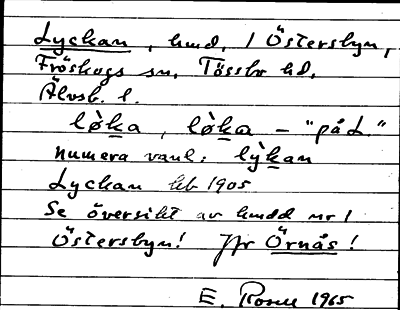 Lyckan, hmd, 1 Östersbyn,
Fröskogs sn, Tössbo hd,
Älvsb. l.
lø̀ka, lø̀ka – "på L."
numera vanl: lỳkan
Lyckan hb 1905
Se översikt av hmdd nr 1
Östersbyn! Jfr Örnås!
E. 1965